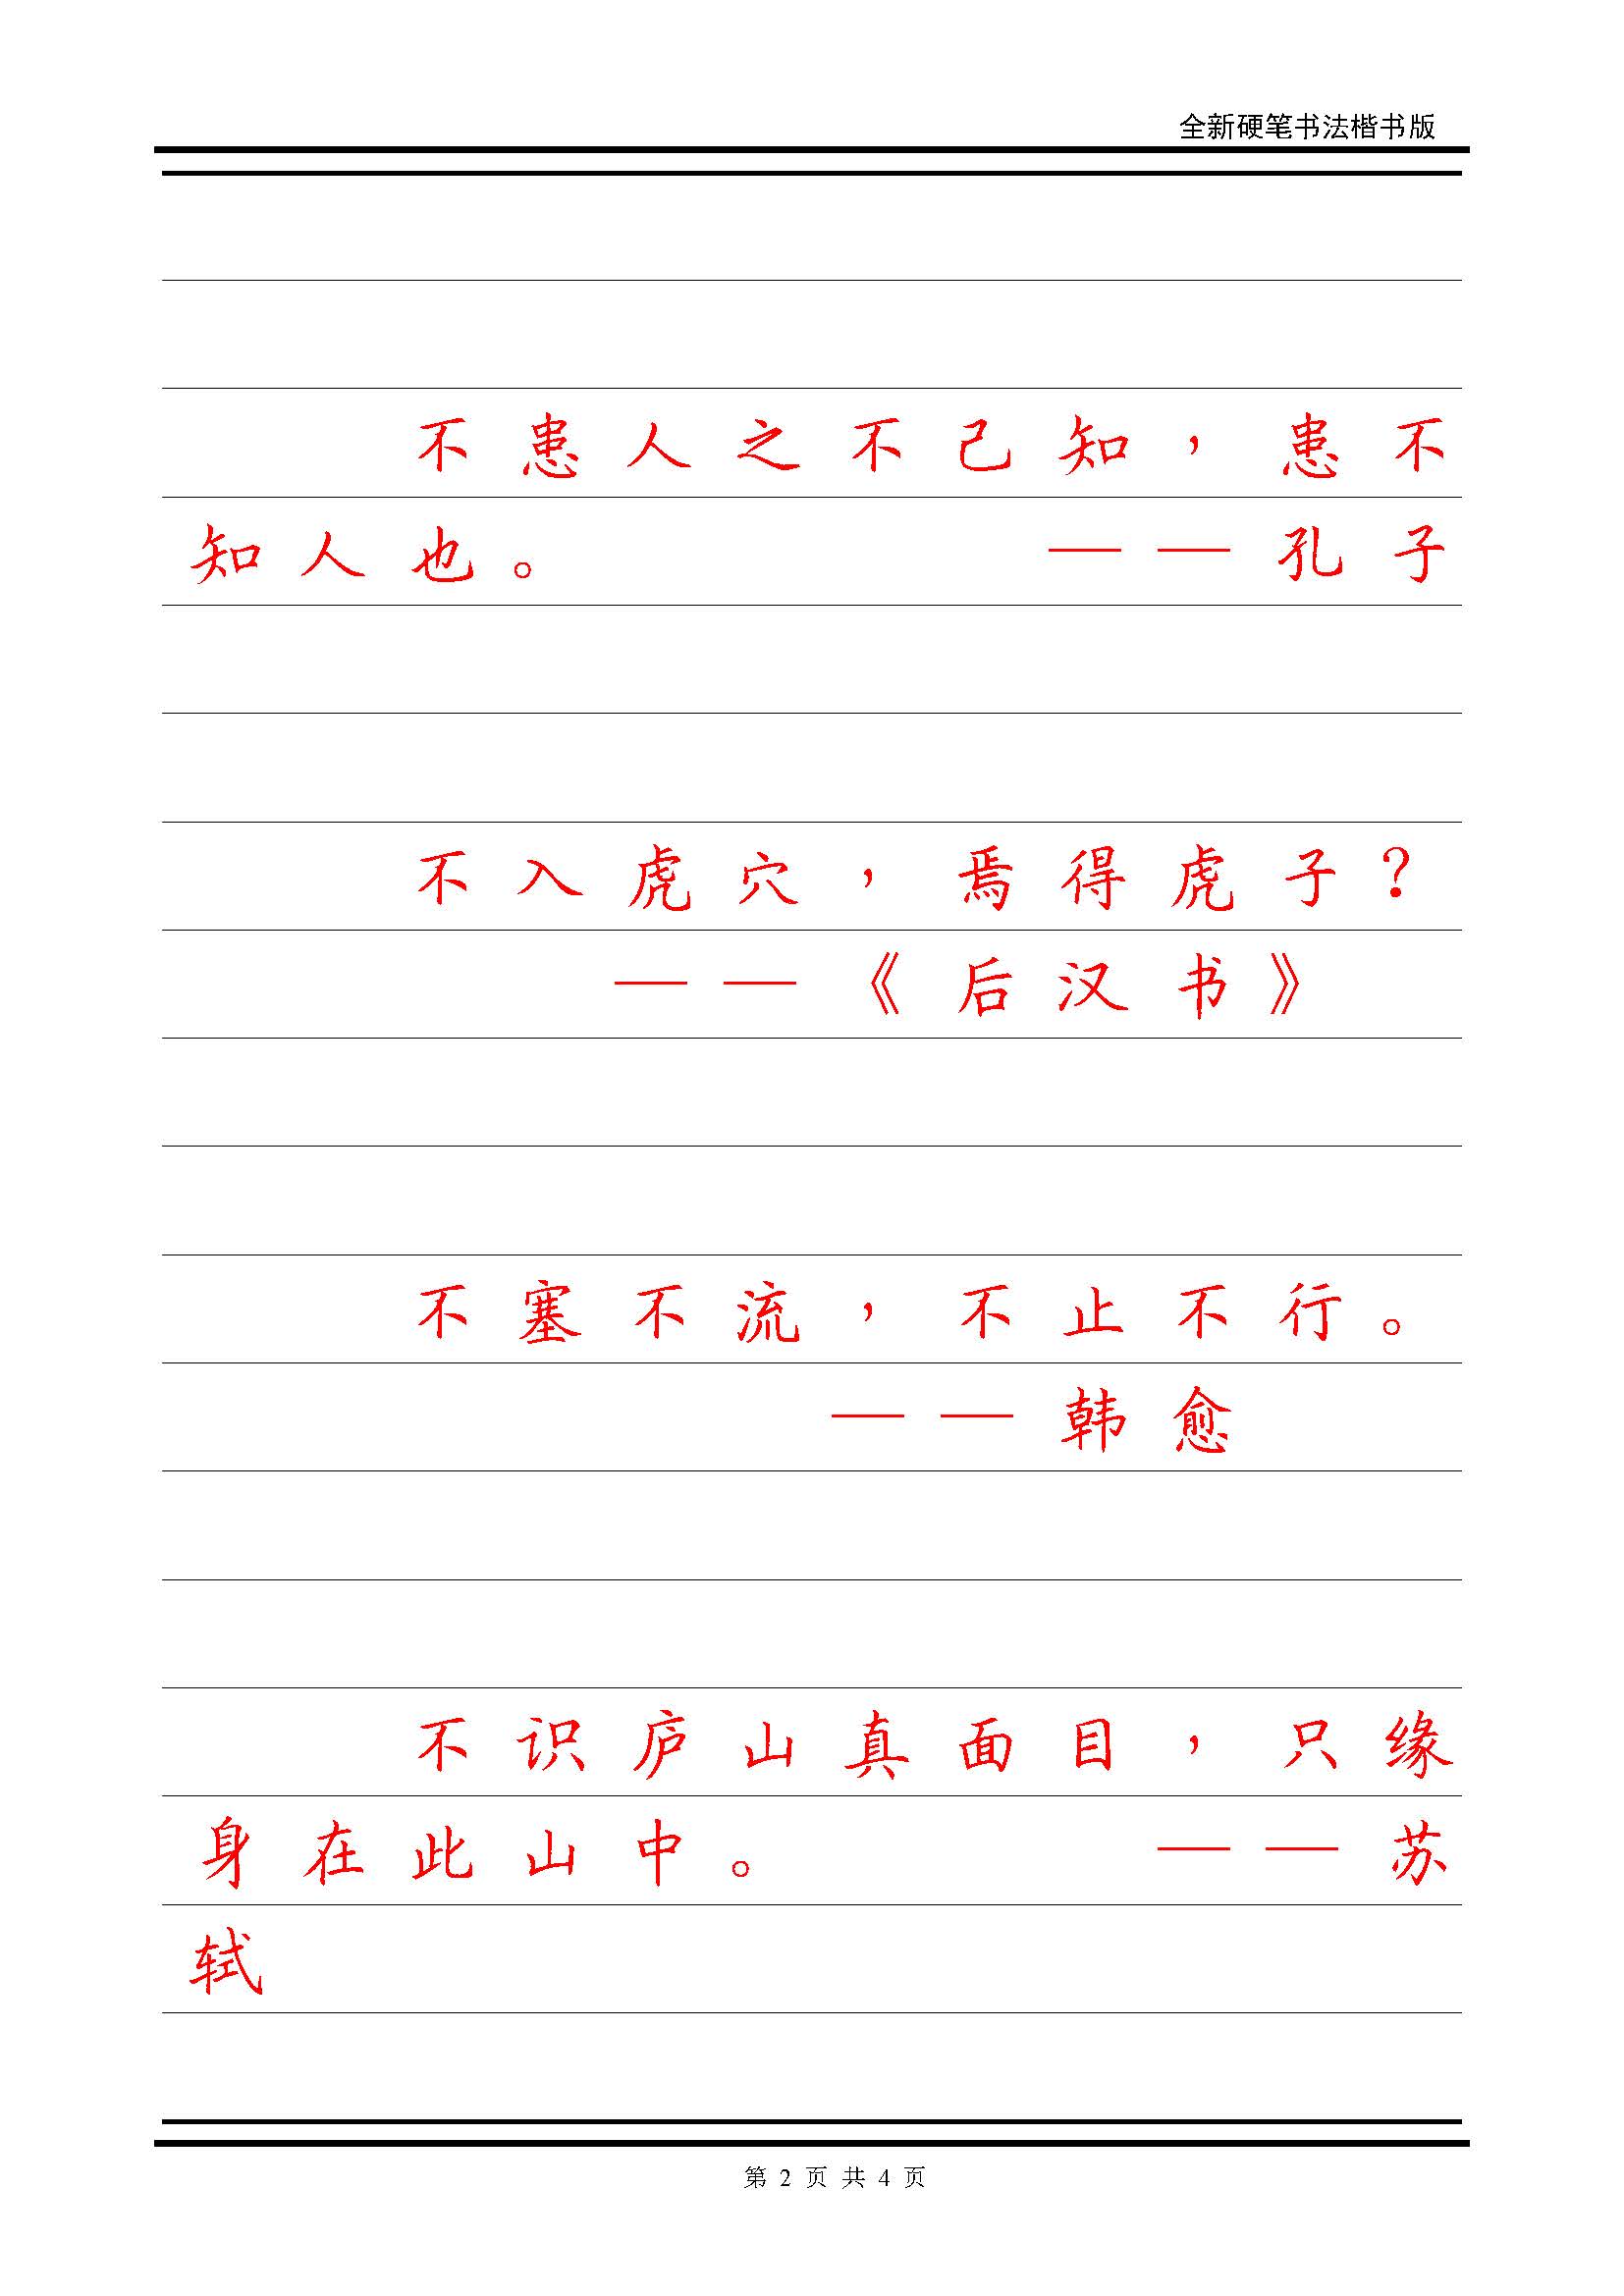 全新硬笔书法楷书版
不患人之不己知，患不
知人也。——孔子
不入虎穴，焉得虎子？
——《后汉书》
不塞不流，不止不行。
——韩愈
不识庐山真面目，只缘
身在此山中。——苏
轼
第 2 页 共 4 页